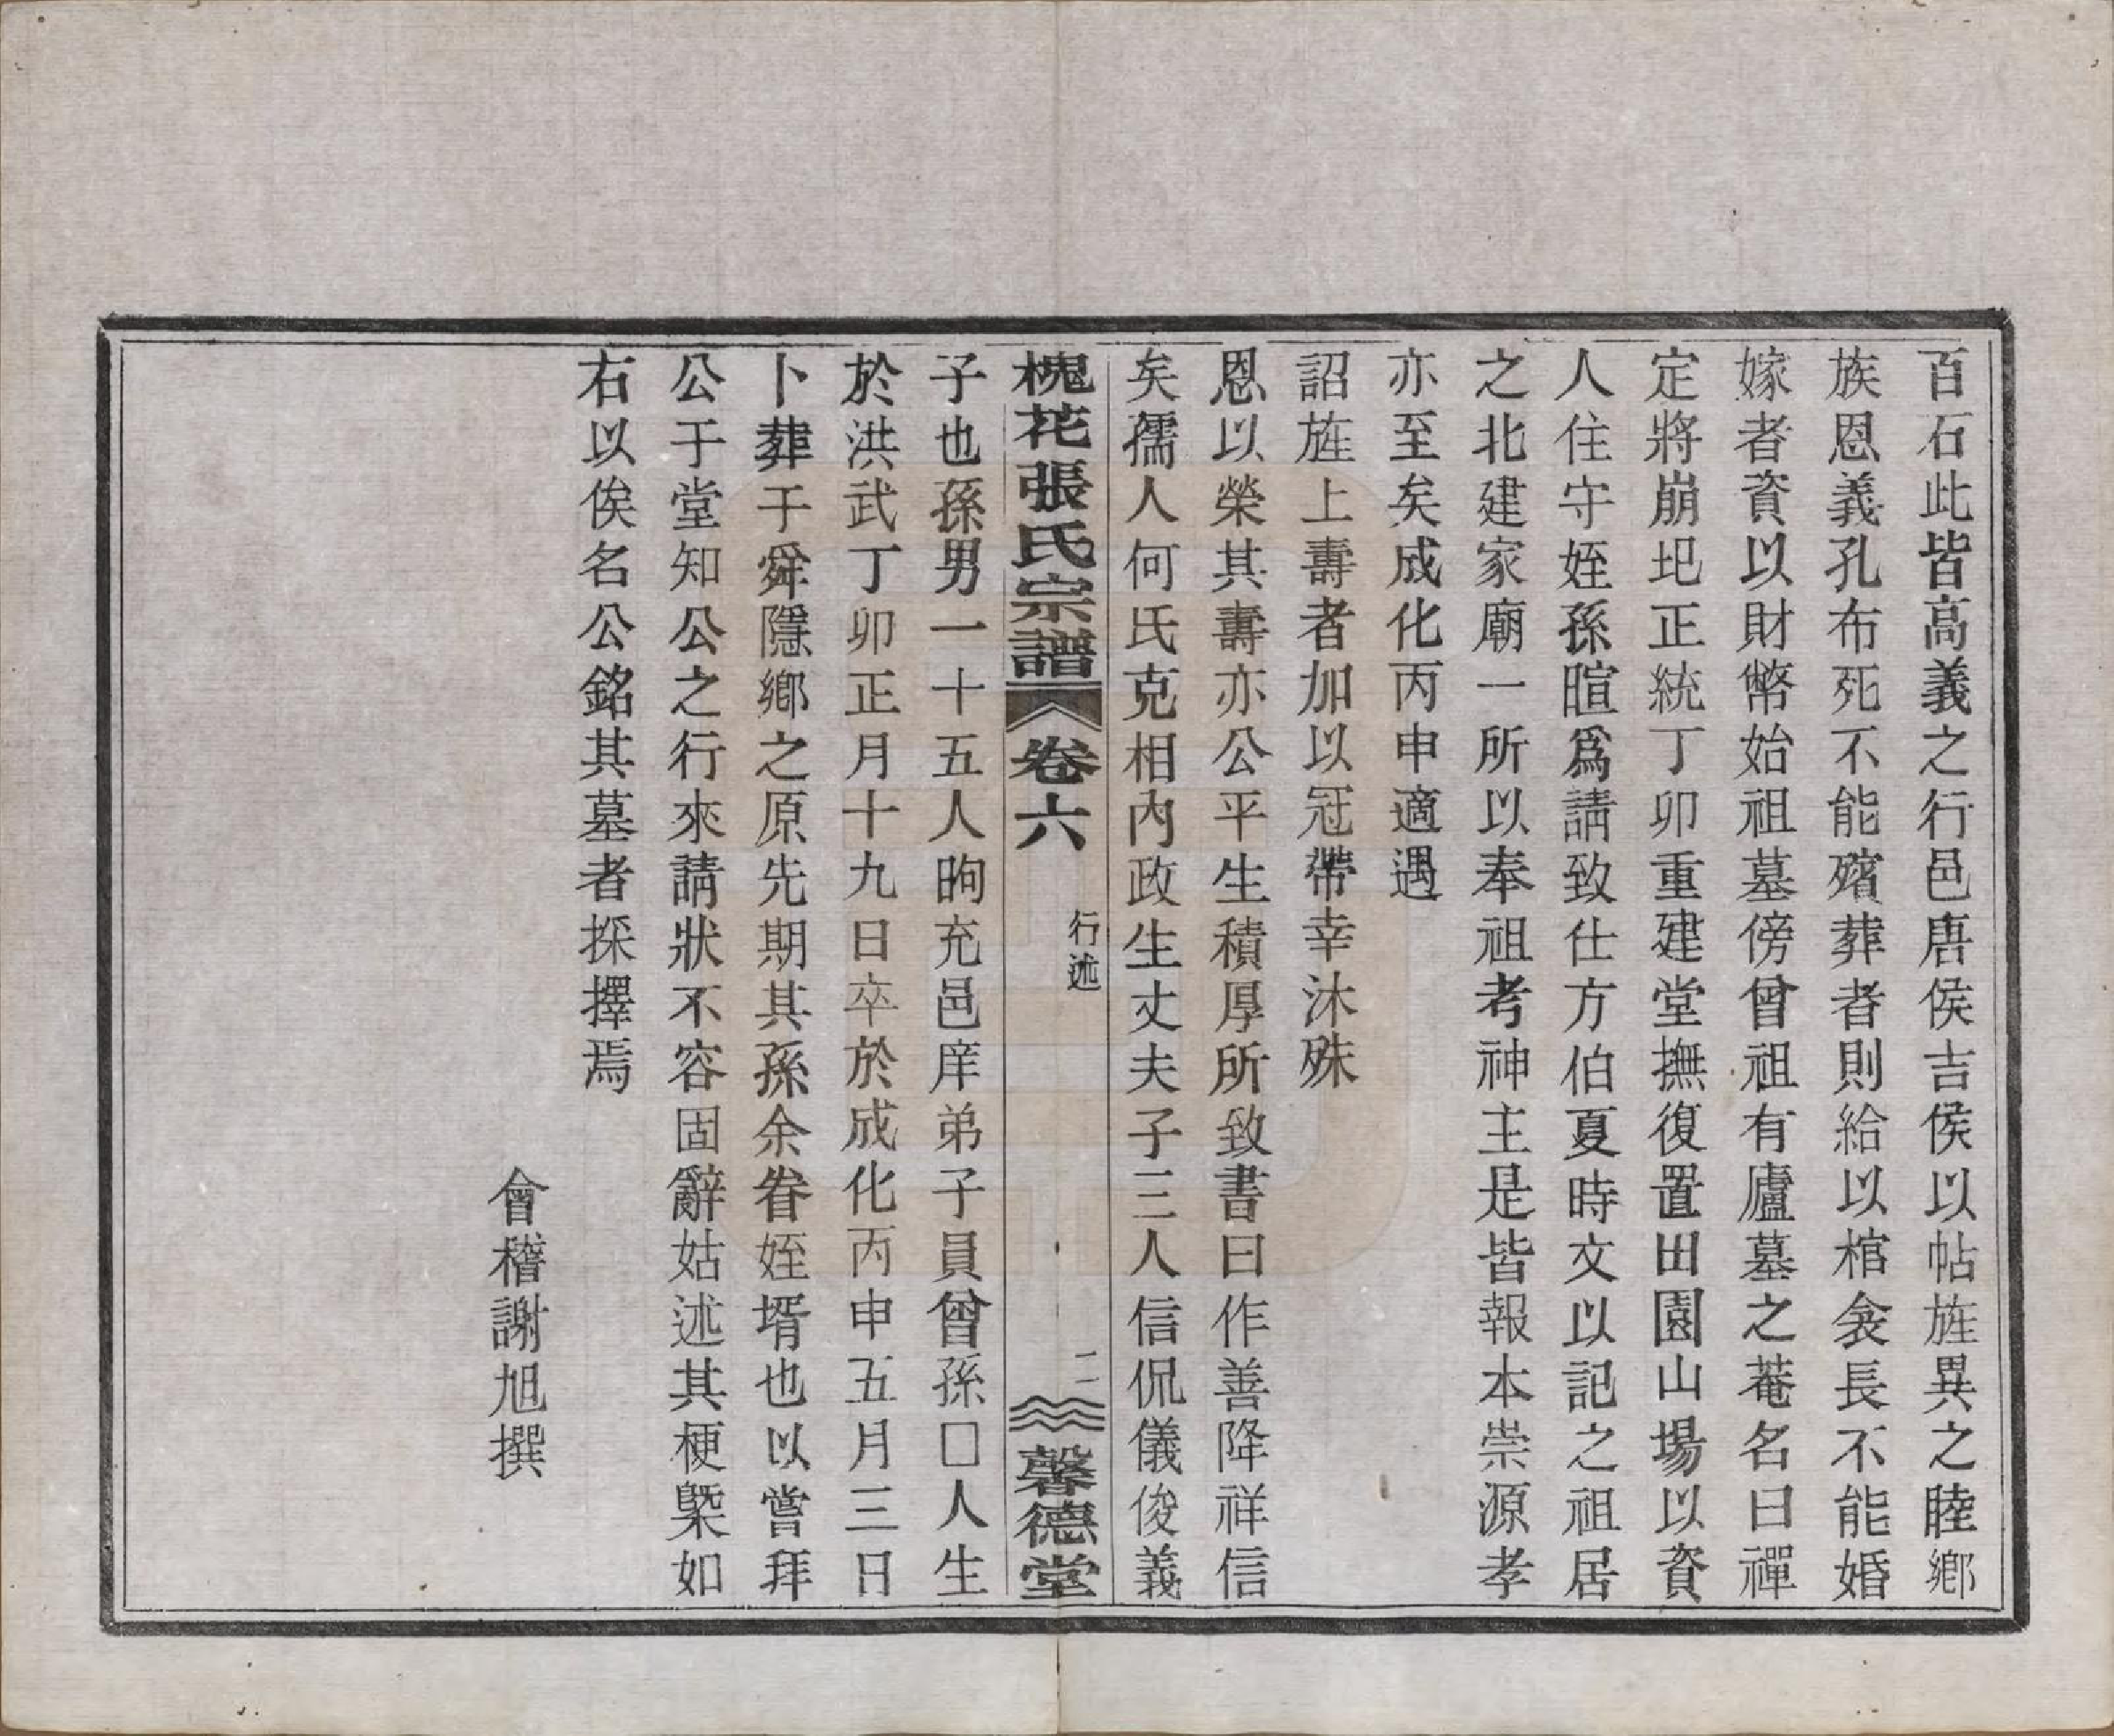 百石此皆高義之行邑唐侯吉侯以帖旌異之睦鄉
族恩義孔布死不能殯葬者則給以棺衾長不能婚
嫁者資以財幣始祖墓傍曾祖有廬墓之菴名曰禪
定將崩圯正統丁卯重建堂撫復置田園山場以資
人住守姪孫暄爲請致仕方伯夏時文以記之祖居
之北建家廟一所以奉祖考神主是皆報本崇源孝
亦至矣成化丙申適遇
詔旌上壽者加以冠帶幸沐殊
恩以榮其壽亦公平生積厚所致書曰作善降祥信
矣孺人何氏克相內政生丈夫子三人信侃儀俊義
槐花張氏宗譜 卷六 行述 二 馨德堂
子也孫男一十五人昫充邑庠弟子員曾孫囗人生
於洪武丁卯正月十九日卒於成化丙申五月三日
卜葬于舜隱鄉之原先期其孫余眷姪壻也以嘗拜
公于堂知公之行來請狀不容固辭姑述其梗槩如
右以俟名公銘其墓者採擇焉
會稽謝旭撰